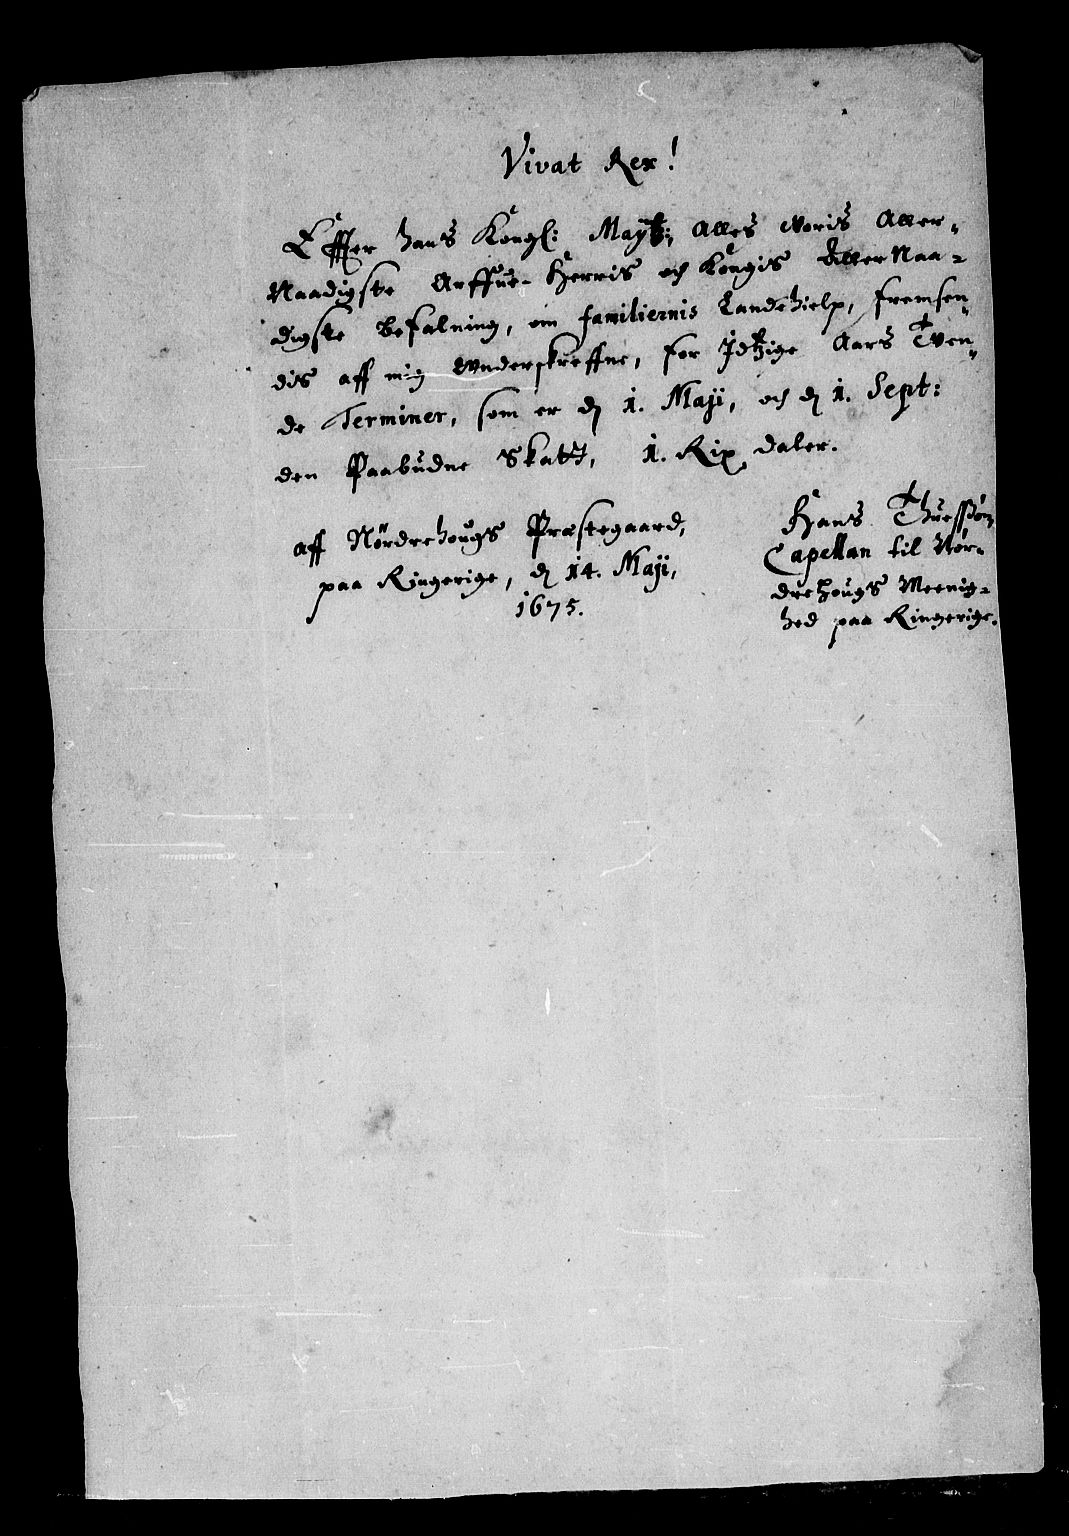 Vivat Rex!
Effter hans Kongl: Maytz: Alles Woris Aller-
Naadigste Arffue- Herris och Kongis AllerNaa-
digste Befalning, om familiernis Landehielp, fremsen-
dis aff mig Vnderskreffne, for Idtzige Aars Tven-
de Terminer, som er dn 1. Maji, och dn 1. Sept:
den Paabudne Skatt, 1. Rix daler.
aff Nordrehougs Præstegaard,
paa Ringerige, dn 14. Maji,
1675.
Hans Thuessøn
Capellan til Nor-
drehougs Meenig-
hed paa Ringerige.